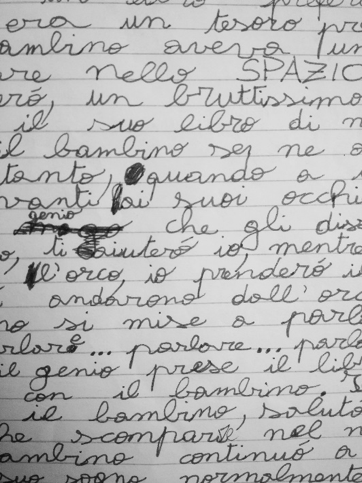 era un tesoro
ambino aveva un
are nello SPAZIO
eró, un bruttissimo
il suo libro di
il bambino se ne
tanto, quando a
vanti ai suoi occhi
genio
che gli
o, ti aiuteró io, mentre
l'orco, io prenderó
andarono dall'orc
no si mise a parl
rlare... parlare... parl
il genio prese il lib
con il bambino.
il bambino, salutó
he scomparì nel
ambino continuó a
suo sogno normalment